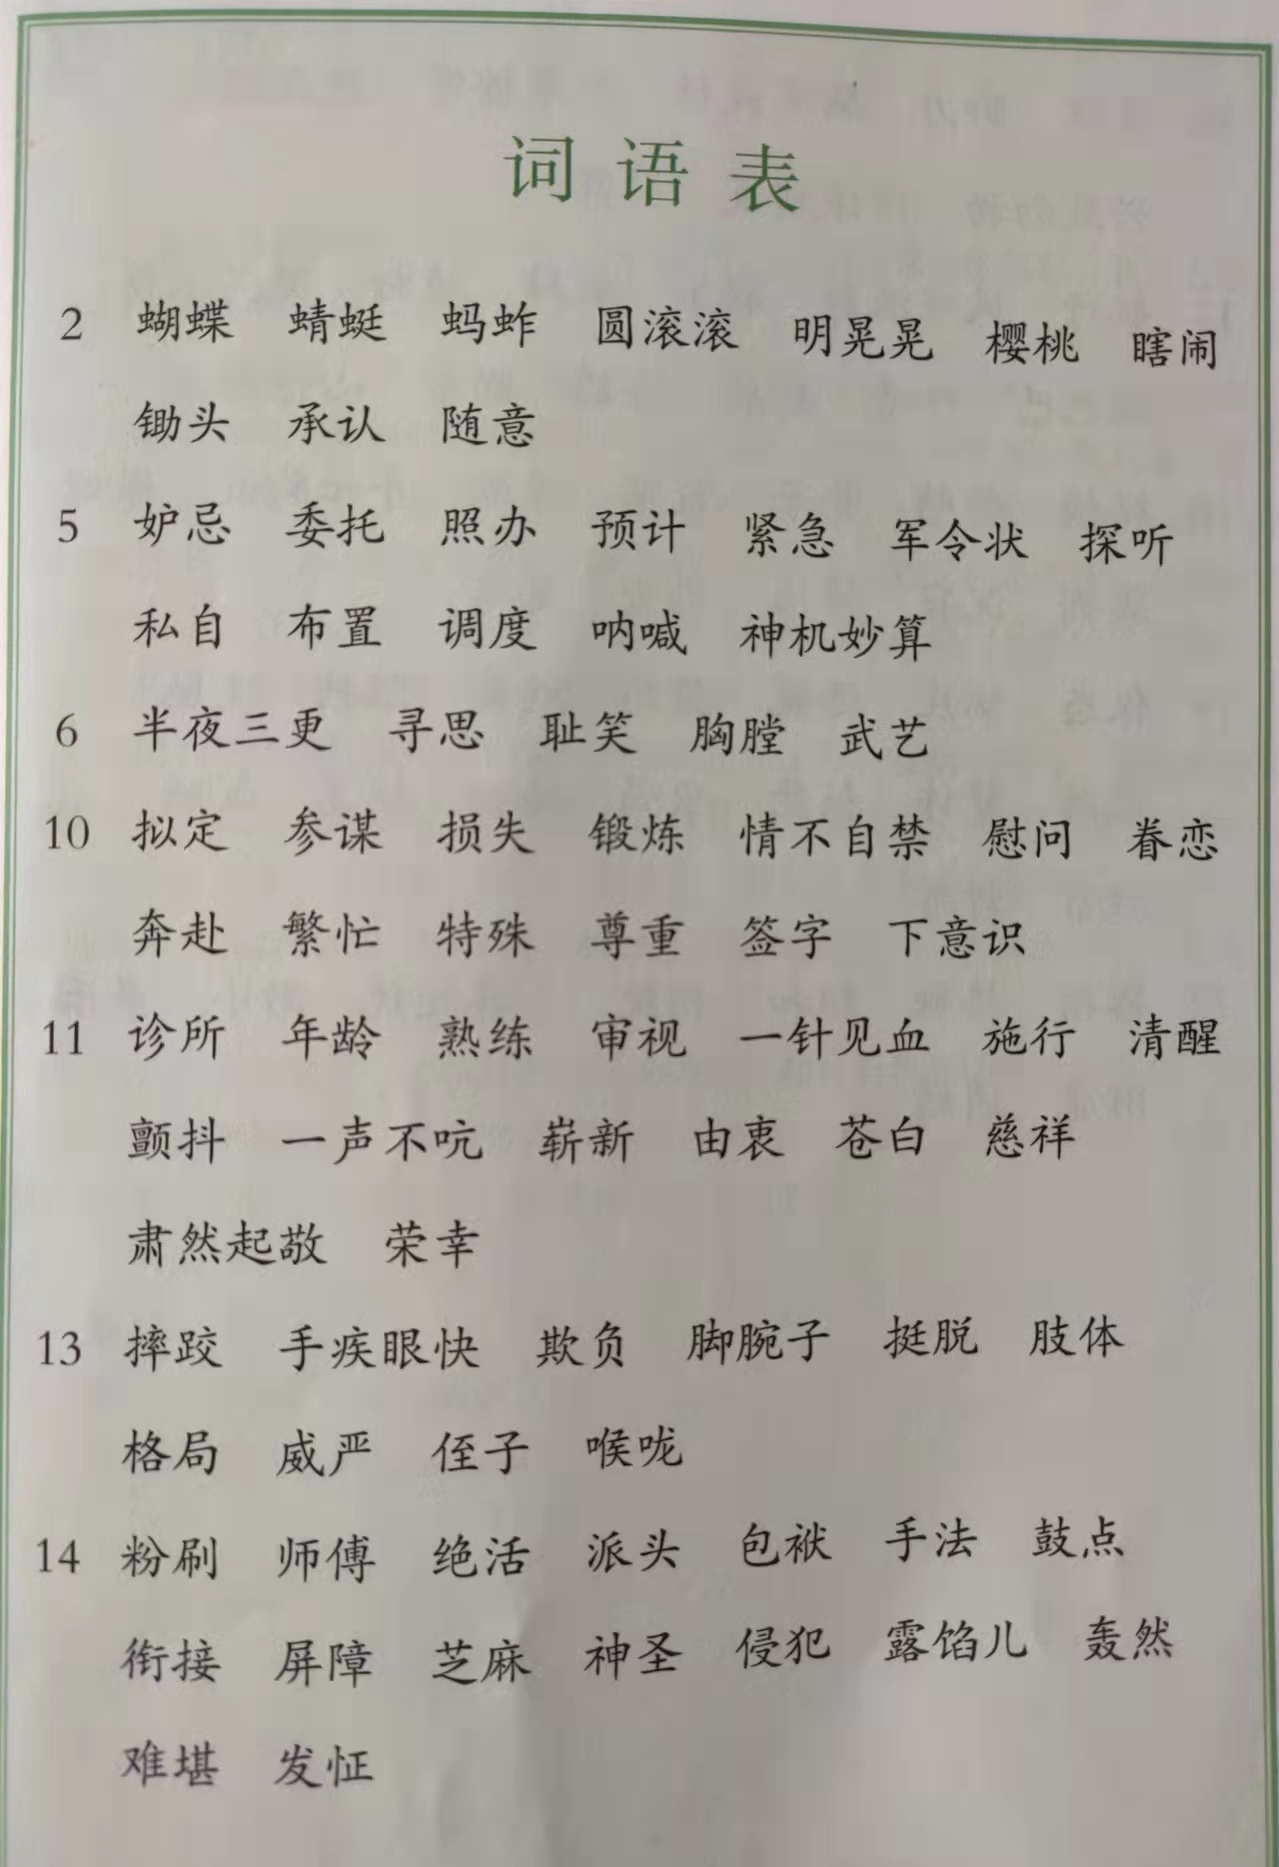 词语表
2 蝴蝶 蜻蜓 蚂蚱 圆滚滚 明晃晃 樱桃 瞎闹
锄头 承认 随意
5 妒忌 委托 照办 预计 紧急 军令状 探听
私自 布置 调度 呐喊 神机妙算
6 半夜三更 寻思 耻笑 胸膛 武艺
10 拟定 参谋 损失 锻炼 情不自禁 慰问 眷恋
奔赴 繁忙 特殊 尊重 签字 下意识
11 诊所 年龄 熟练 审视 一针见血 施行 清醒
颤抖 一声不吭 崭新 由衷 苍白 慈祥
肃然起敬 荣幸
13 摔跤 手疾眼快 欺负 脚腕子 挺脱 肢体
格局 威严 侄子 喉咙
14 粉刷 师傅 绝活 派头 包袱 手法 鼓点
衔接 屏障 芝麻 神圣 侵犯 露馅儿 轰然
难堪 发怔